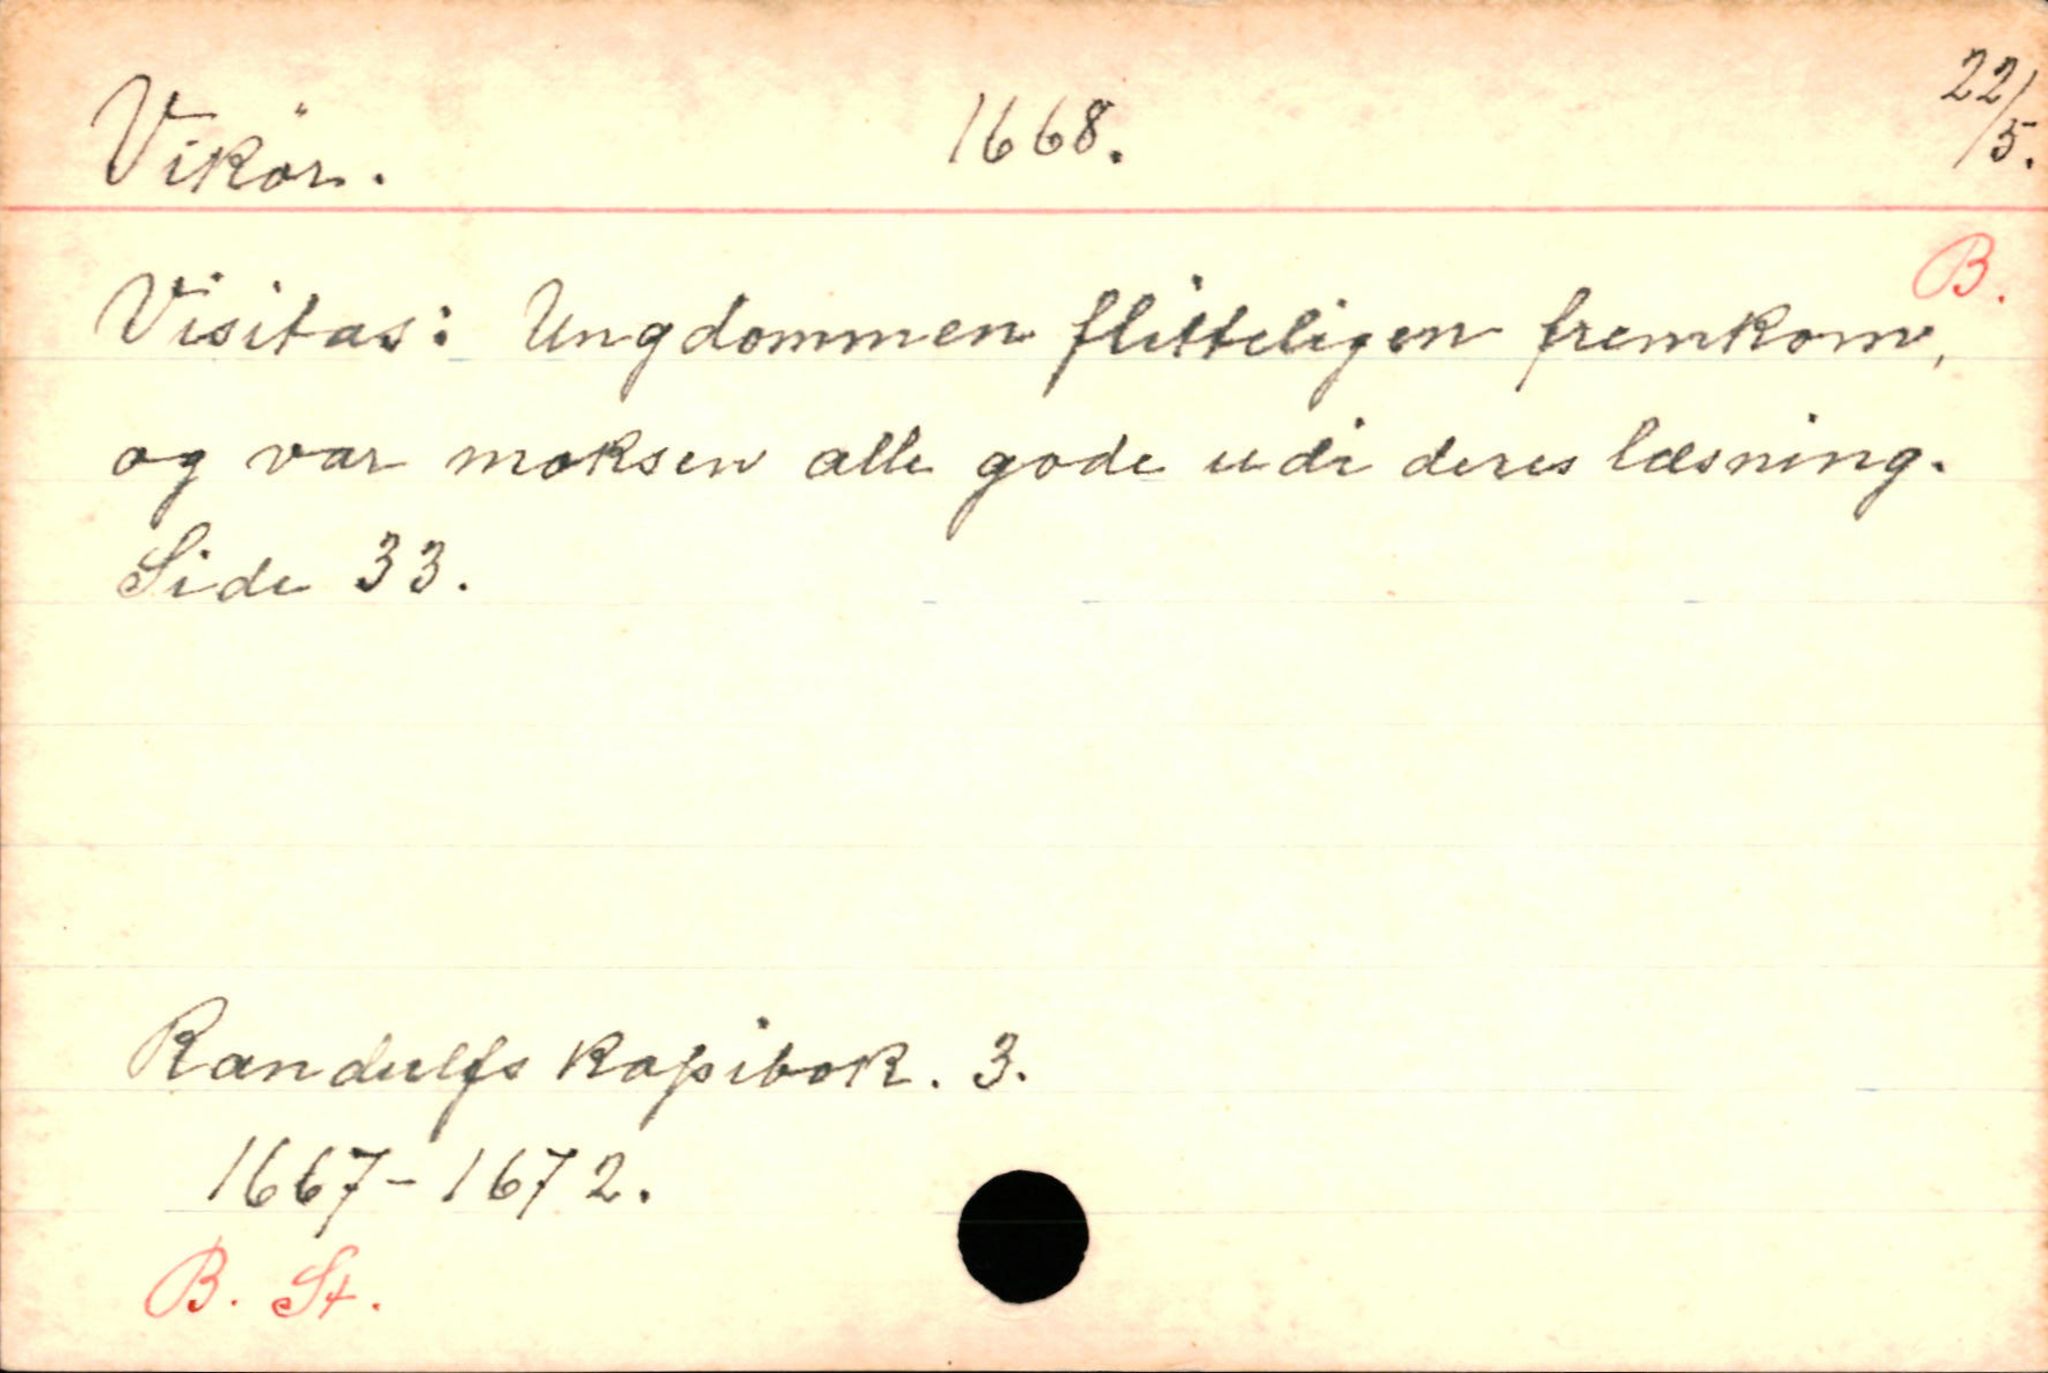 Vikör. 1668. 22/5.
B.
Visitas: Ungdommen flitteligen fremkom,
og var moksen alle gode udi deres læsning.
Side 33.
Randulfs kopibok. 3.
1667-1672.
B. St.